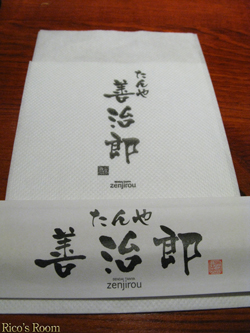 たんや
善治郎
zenjirou
たんや
善治郎
zenjirou
Rico's Room